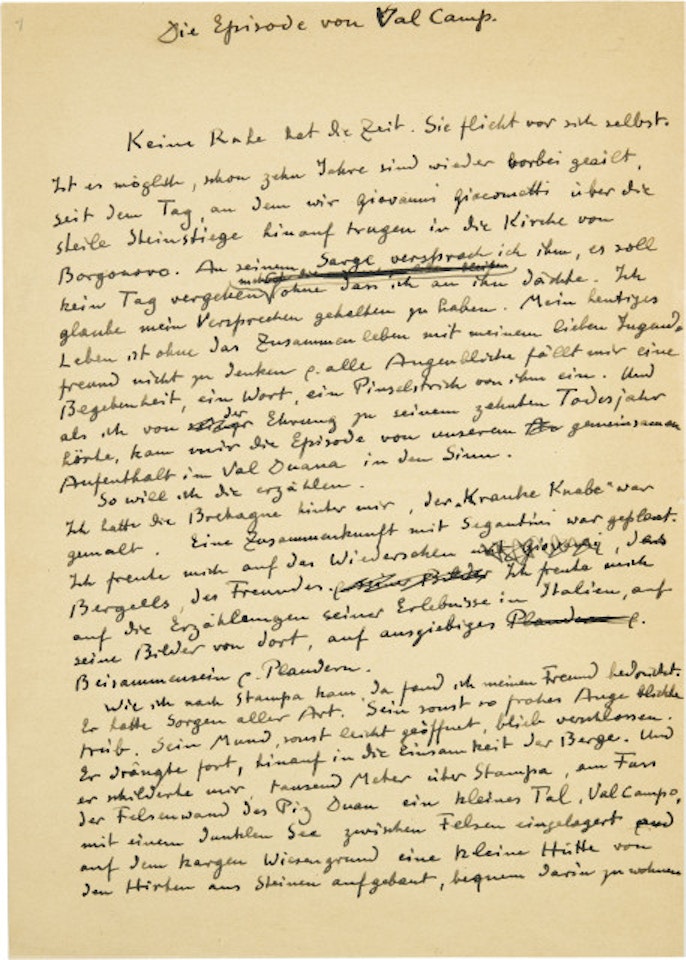 Die Episode von Val Camp.
Keine Ruhe hat die Zeit. Sie flieht vor sich selbst.
Ist es möglich, schon zehn Jahre sind wieder vorbei geeilt,
seit dem Tag, an dem wir Giovanni Giacometti über die
steile Steinstiege hinauf trugen in die Kirche von
Borgonovo. An seinem Sarge versprach ich ihm, es soll
kein Tag vergehen ohne dass ich an ihn dächte. Ich
glaube mein Versprechen gehalten zu haben. Mein heutiges
Leben ist ohne das Zusammenleben mit meinem lieben Jugend-
freund nicht zu denken & alle Augenblicke fällt mir eine
Begebenheit, ein Wort, ein Pinselstrich von ihm ein. Und
als ich von der Ehrung zu seinem zehnten Todesjahr
hörte, kam mir die Episode von unserem gemeinsamen
Aufenthalt im Val Duana in den Sinn.
So will ich die erzählen.
Ich hatte die Bretagne hinter mir, der „Kranke Knabe" war
gemalt. Eine Zusammenkunft mit Segantini war geplant.
Ich freute mich auf das Wiedersehen des
Bergells, des Freundes. Ich freute mich
auf die Erzählungen seiner Erlebnisse in Italien, auf
seine Bilder von dort, auf ausgiebiges Plaudern &
Beisammensein & Plaudern.
Wie ich nach Stampa kam, da fand ich meinen Freund bedrückt.
Er hatte Sorgen aller Art. Sein sonst so frohes Auge blickte
trüb. Sein Mund, sonst leicht geöffnet, blieb verschlossen.
Er drängte fort, hinauf in die Einsamkeit der Berge. Und
er schilderte mir, tausend Meter über Stampa, am Fuss
der Felsenwand des Piz Duan ein kleines Tal, Val Campo,
mit einem dunklen See zwischen Felsen eingelagert und
auf dem kargen Wiesengrund eine kleine Hütte von
den Hirten aus Steinen aufgebaut, bequem darin zu wohnen